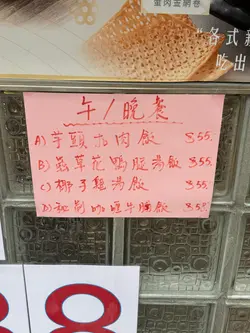 蛋肉金網卷
"各式新
吃出
午/晚餐
A) 芋頭扣肉飯 $55.
B) 蟲草花鴨腿湯飯 $55.
C) 椰子雞湯飯 $55.
D) 秘制咖喱牛腩飯 $55.
8 8